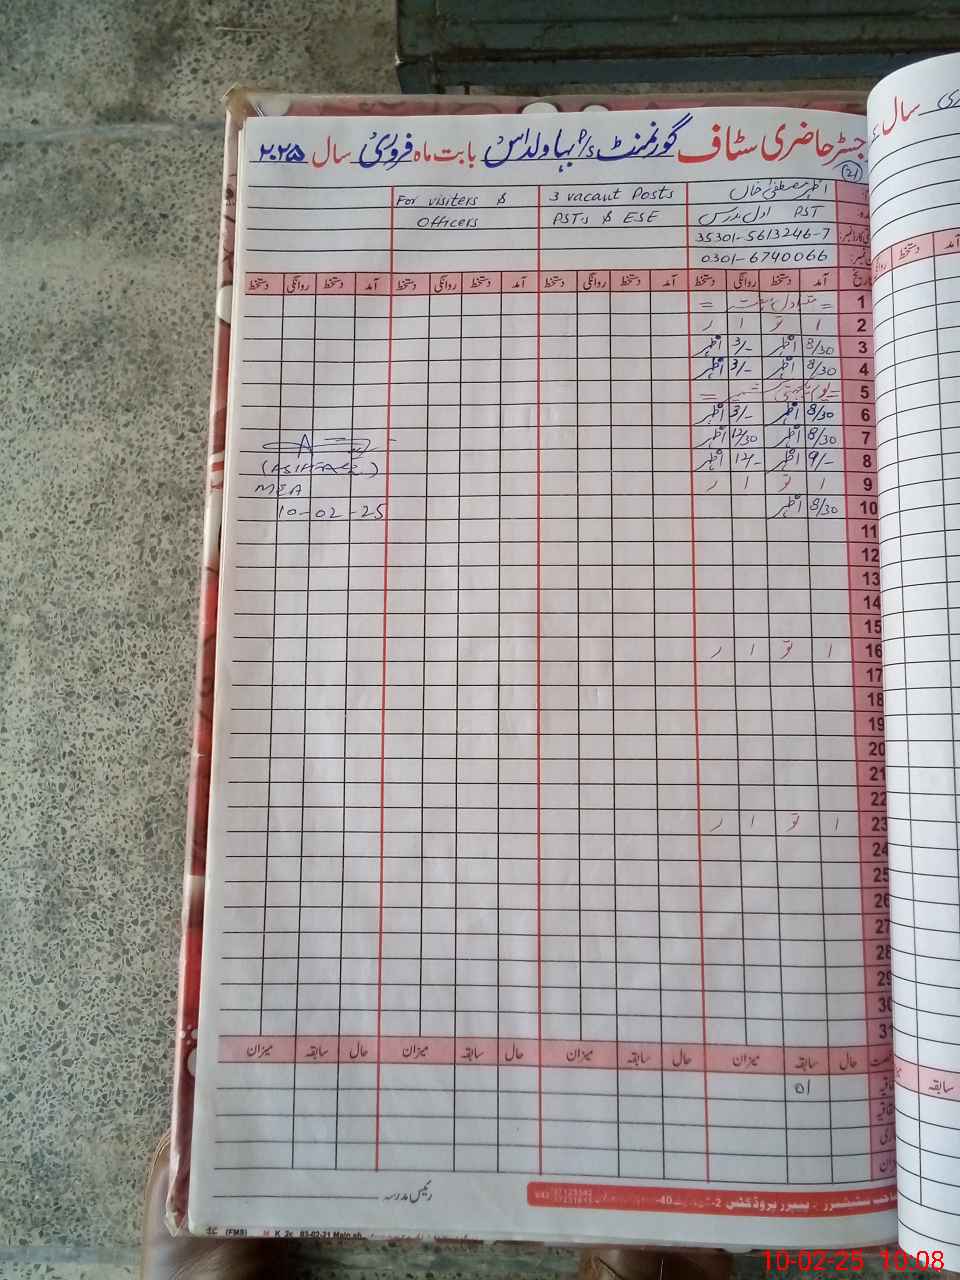 رجسٹر حاضری سٹاف گورنمنٹ P/S بہاولداس بابت ماہ فروری سال ۲۰۲۵
(21)
اظہر مصطفیٰ خاں
3 vacant Posts
For visiters &
PST اول مدرس
PSTs & ESE
Officers
35301-5613246-7
0301-6740066
تاریخ آمد دستخط روانگی دستخط آمد دستخط روانگی دستخط آمد دستخط روانگی دستخط آمد دستخط روانگی دستخط
1
2 ا تو ا ر
3 8/30 اظہر 3/- اظہر
4 8/30 اظہر 3/- اظہر
5 = یوم یکجہتی کشمیر =
6 8/30 اظہر 3/- اظہر
7 8/30 اظہر 12/30 اظہر
8 9/- اظہر 12/- اظہر
9 ا تو ا ر
10 8/30 اظہر
11
12
13
14
15
16 ا تو ا ر
17
18
19
20
21
22
23 ا تو ا ر
24
25
26
27
28
29
30
31
MEA
10-02-25
حال سابقہ میزان حال سابقہ میزان حال سابقہ میزان حال سابقہ میزان
01
رئیس مدرسہ
(FMS) M K 2c 03-02-21 Main
سال
آمد دستخط روانگی
سابقہ
10-02-25 10:08